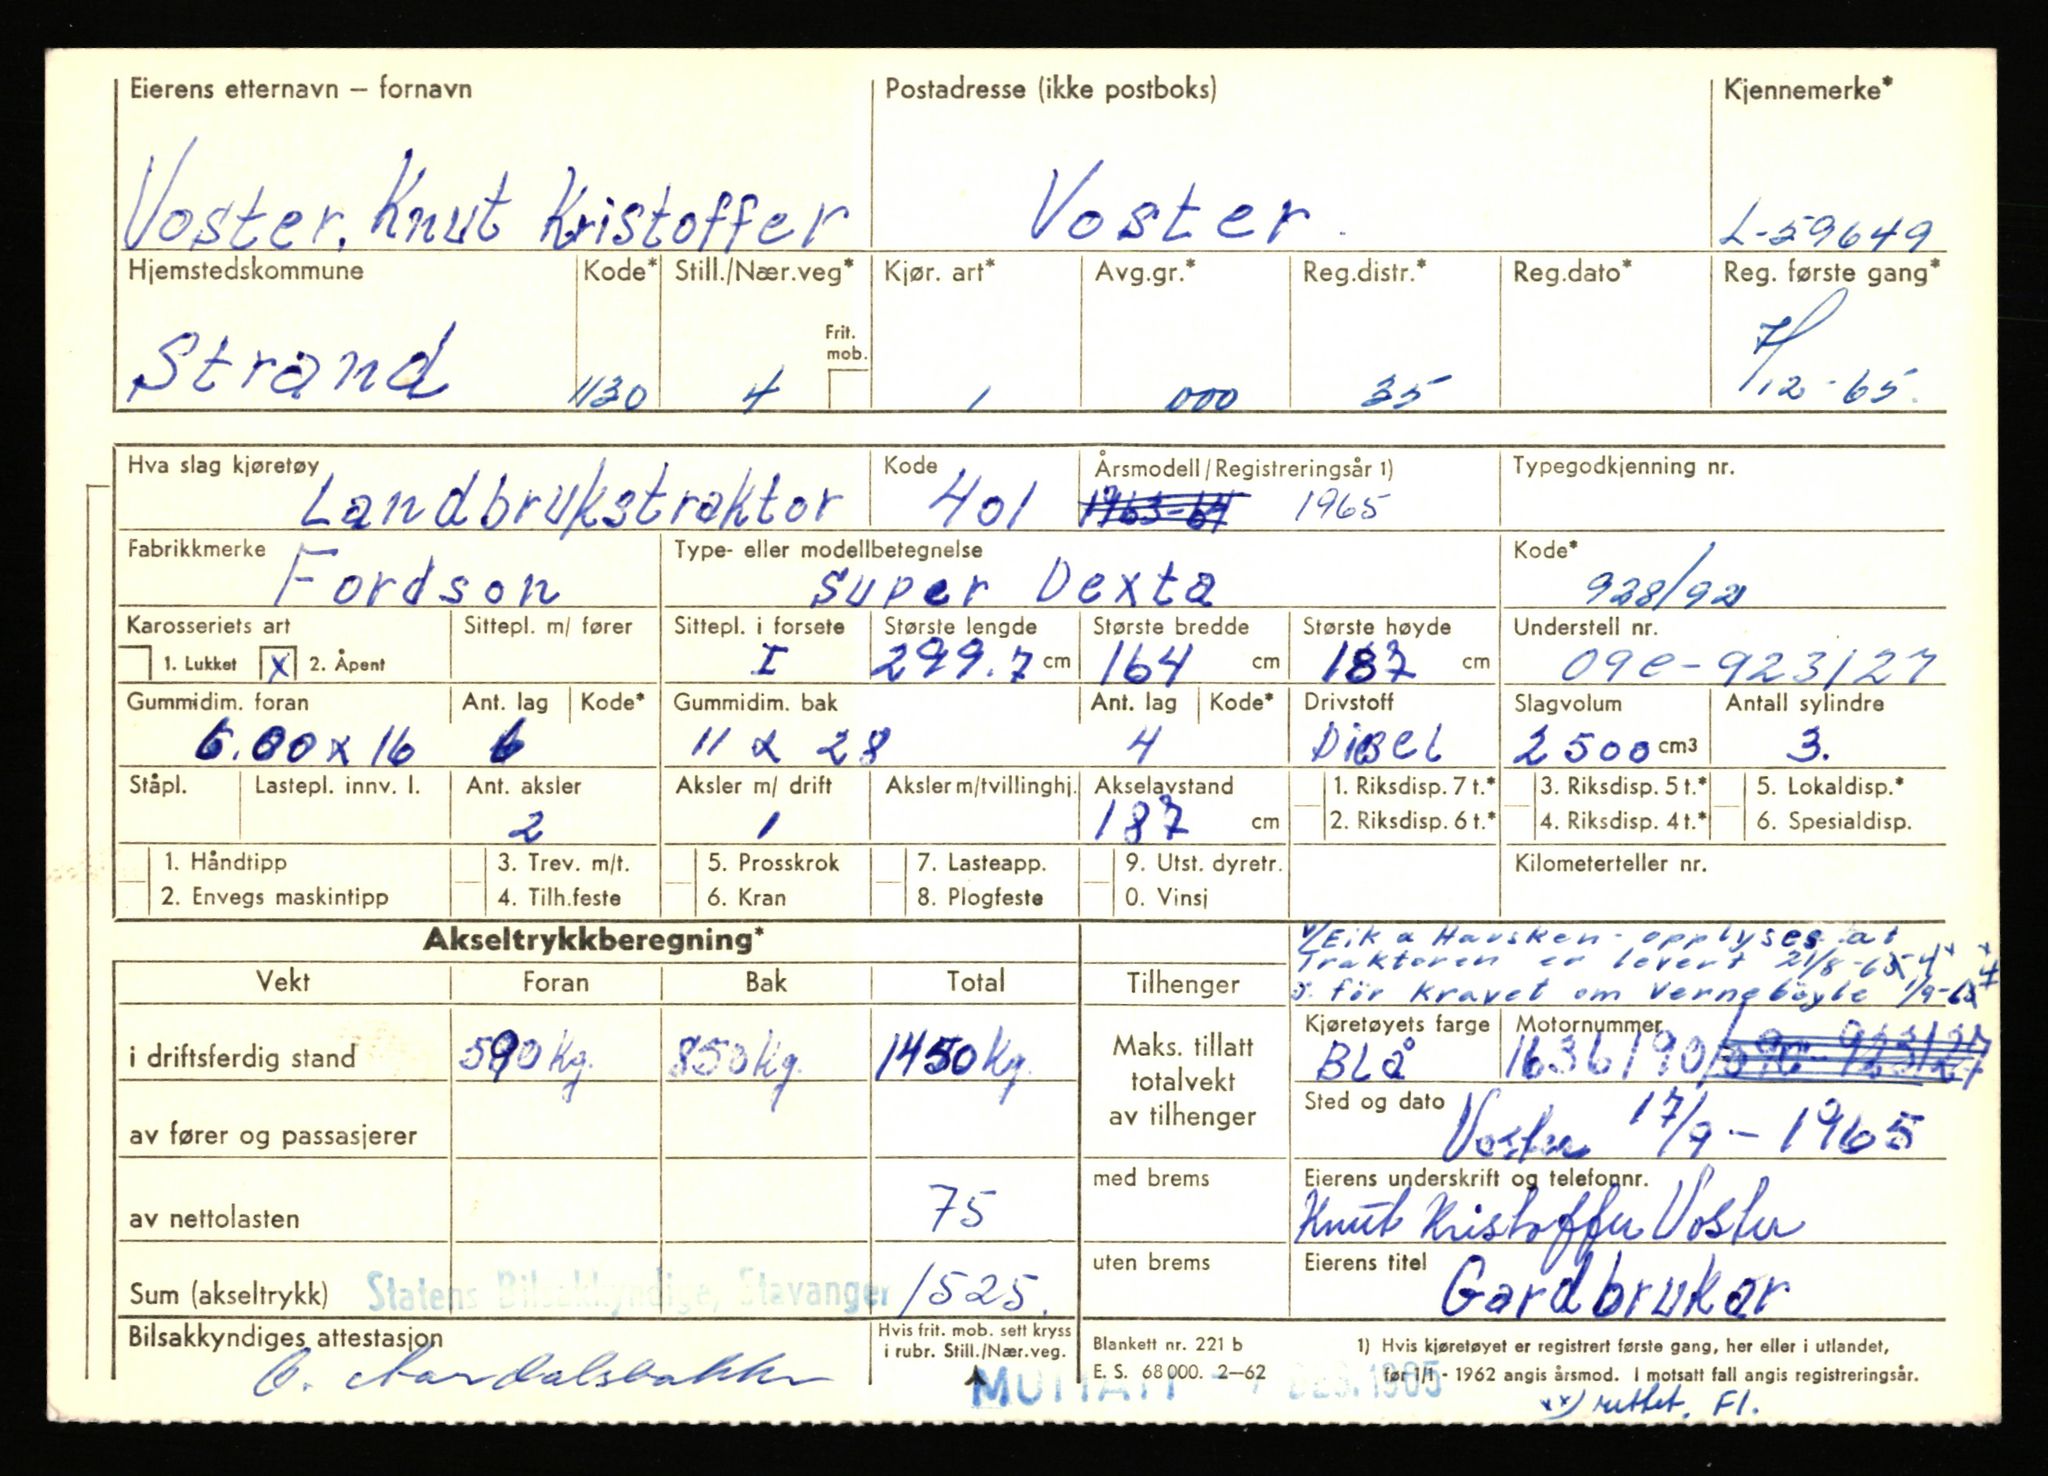 Eierens etternavn – fornavn Postadresse (ikke postboks) Kjennemerke*
Voster, Knut Kristoffer Voster. L-59649
Hjemstedskommune Kode* Still./Nær.veg* Kjør. art* Avg.gr.* Reg.distr.* Reg.dato* Reg. første gang*
Frit. mob.
Strand 1130 4 1 000 35 7/12-65.
Hva slag kjøretøy Kode Årsmodell/Registreringsår 1) Typegodkjenning nr.
Landbrukstraktor 401 1963-64 1965
Fabrikkmerke Type- eller modellbetegnelse Kode*
Fordson Super Dexta 928/92
Karosseriets art Sittepl. m/ fører Sittepl. i forsete Største lengde Største bredde Største høyde Understell nr.
1. Lukket X 2. Åpent I 299.7 cm 164 cm 187 cm 09C-923127
Gummidim. foran Ant. lag Kode* Gummidim. bak Ant. lag Kode* Drivstoff Slagvolum Antall sylindre
6.00 x 16 6 11 x 28 4 Disel 2500 cm3 3.
Ståpl. Lastepl. innv. l. Ant. aksler Aksler m/ drift Aksler m/tvillinghj. Akselavstand 1. Riksdisp. 7 t.* 3. Riksdisp. 5 t.* 5. Lokaldisp.*
2 1 187 cm 2. Riksdisp. 6 t.* 4. Riksdisp. 4 t.* 6. Spesialdisp.
1. Håndtipp 3. Trev. m/t. 5. Prosskrok 7. Lasteapp. 9. Utst. dyretr. Kilometerteller nr.
2. Envegs maskintipp 4. Tilh.feste 6. Kran 8. Plogfeste 0. Vinsj
Akseltrykkberegning*
V/Eik a Hausken - opplyses at
Traktoren er levert 21/8-65 4
d. för Kravet om Vernebøyle 1/9-65
Vekt Foran Bak Total Tilhenger
Kjøretøyets farge Motornummer
i driftsferdig stand 590 kg. 850 kg. 1450 kg. Maks. tillatt totalvekt av tilhenger Blå 1636190 09C-923127
Sted og dato
Voster 17/9-1965
av fører og passasjerer
med brems Eierens underskrift og telefonnr.
av nettolasten 75 Knut Kristoffer Voster
uten brems Eierens titel
Sum (akseltrykk) Statens Bilsakkyndige, Stavanger 1525. Gardbrukar
Bilsakkyndiges attestasjon Hvis frit. mob. sett kryss i rubr. Still./Nær.veg. Blankett nr. 221 b 1) Hvis kjøretøyet er registrert første gang, her eller i utlandet,
E. S. 68 000. 2–62 før 1/1 - 1962 angis årsmod. I motsatt fall angis registreringsår.
O. Aardalsbakke MOTTATT - 7 DES. 1965
xx) rettet. Fl.